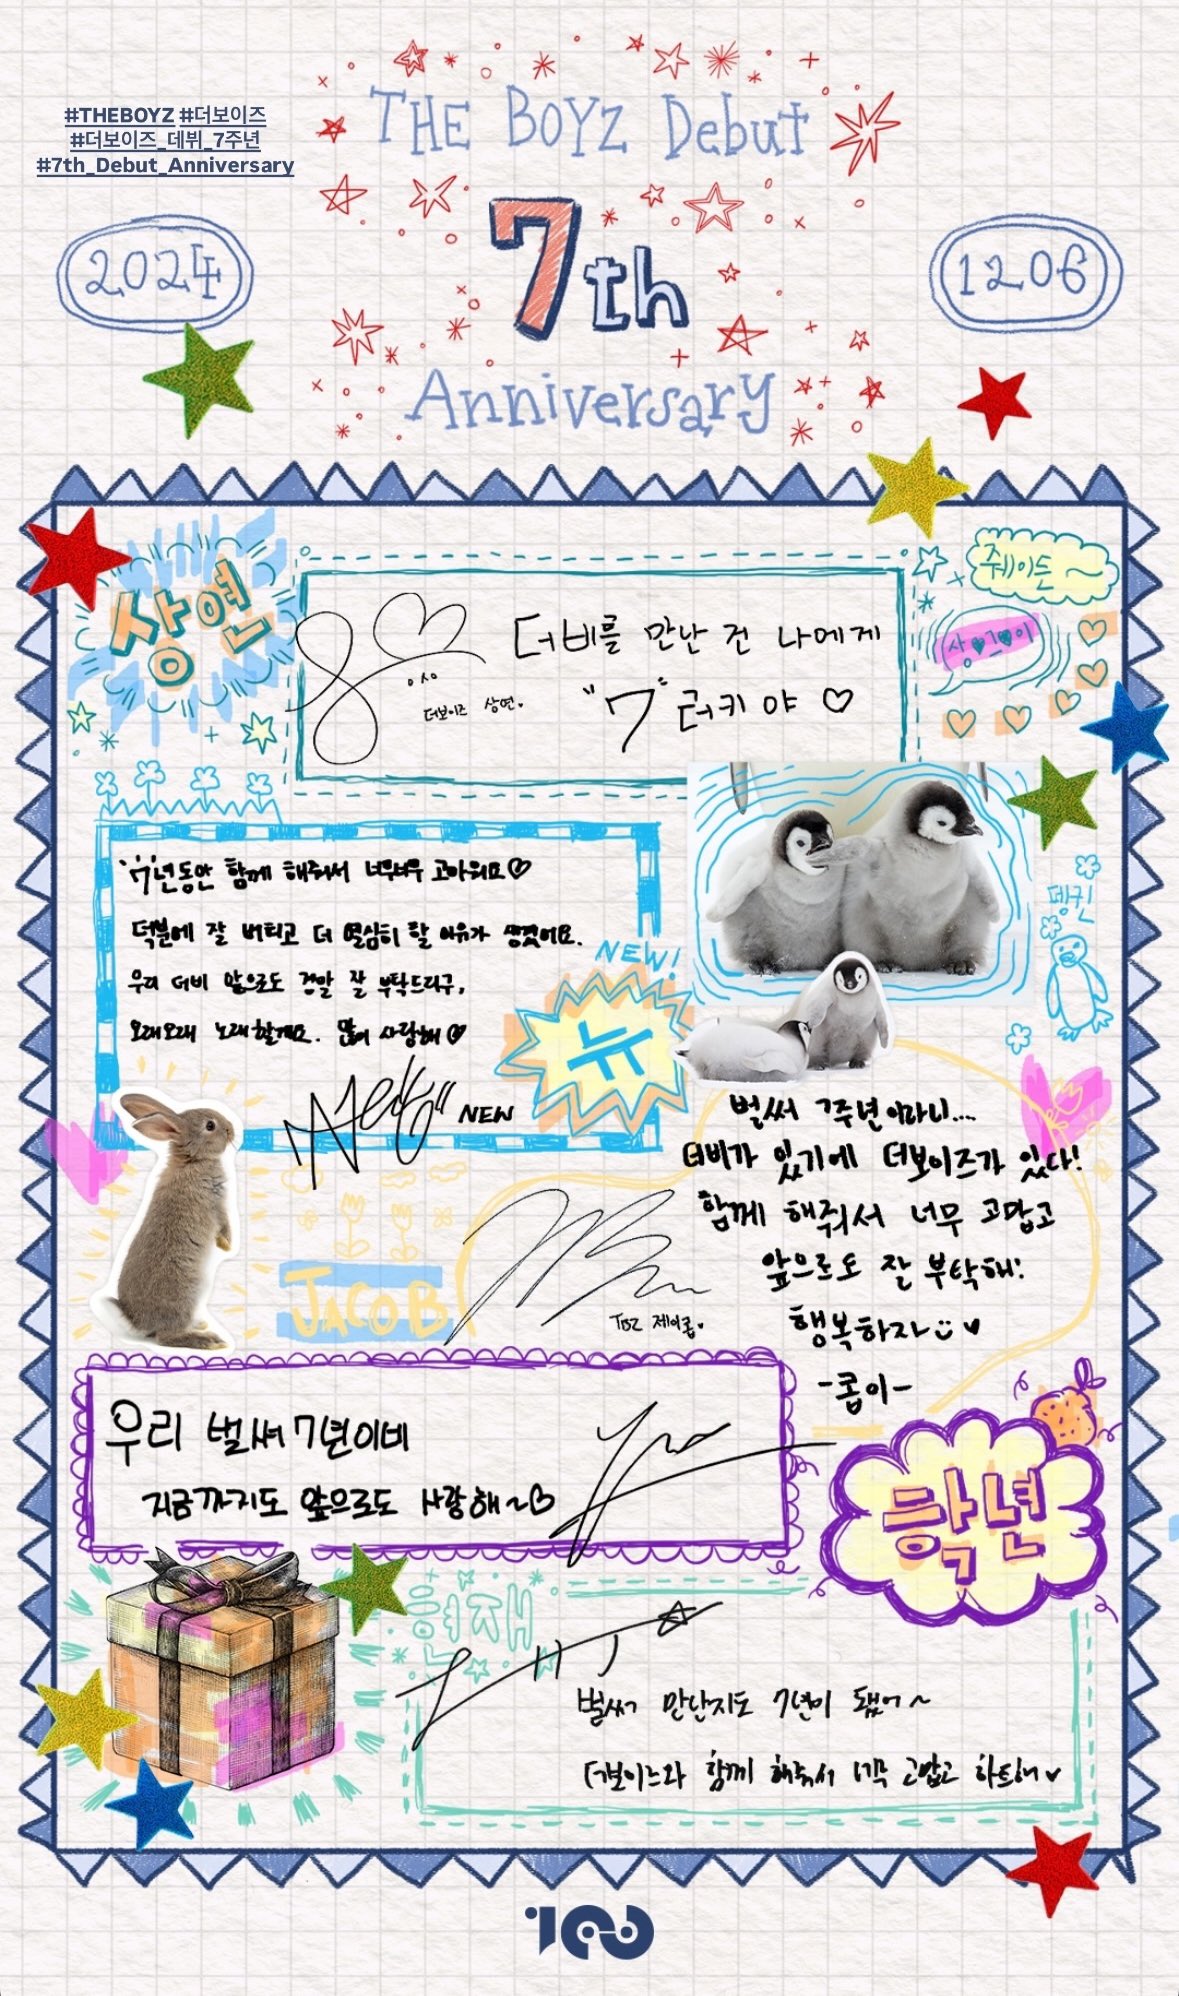 #THEBOYZ #더보이즈
#더보이즈_데뷔_7주년
#7th_Debut_Anniversary
THE BOYZ Debut
7th
Anniversary
2024
12.06
상연
더비를 만난 건 나에게
"7"러키야 ♡
더보이즈 상연.
쥬이든~
상♥연♥이
7년동안 함께 해줘서 너무너무 고마워요♡
덕분에 잘 버티고 더 열심히 할 이유가 생겼어요.
우리 더비 앞으로도 정말 잘 부탁드리구,
오래오래 노래할게요. 많이 사랑해♡
NEW
NEW!
뉴
뎅귄
벌써 7주년이라니....
더비가 있기에 더보이즈가 있다!
함께 해줘서 너무 고맙고
앞으로도 잘 부탁해!
행복하자
-콥이-
JACOB
TBZ 제이콥.
우리 벌써 7년이네
지금까지도 앞으로도 사랑해~♡
학년
현재
벌써 만난지도 7년이 됐어~
더보이즈와 함께 해줘서 너무 고맙고